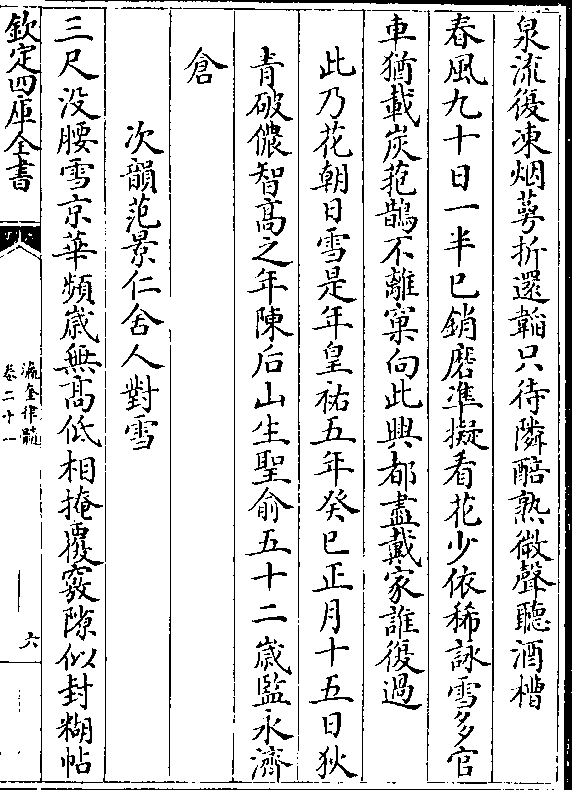 泉流復凍烟蕚折還韜只待隣醅熟微聲聽酒槽
春風九十日一半已銷磨準擬看花少依稀詠雪多官
車猶載炭菢鵲不離窠向此興都盡戴家誰復過
此乃花朝日雪是年皇祐五年癸巳正月十五日狄
青破儂智髙之年陳后山生聖俞五十二歲監永濟
倉
次韻范景仁舍人對雪
三尺没腰雪京華頻歲無髙低相掩覆竅隙似封糊帖
欽定四庫全書
瀛奎律髓
卷二十一
六